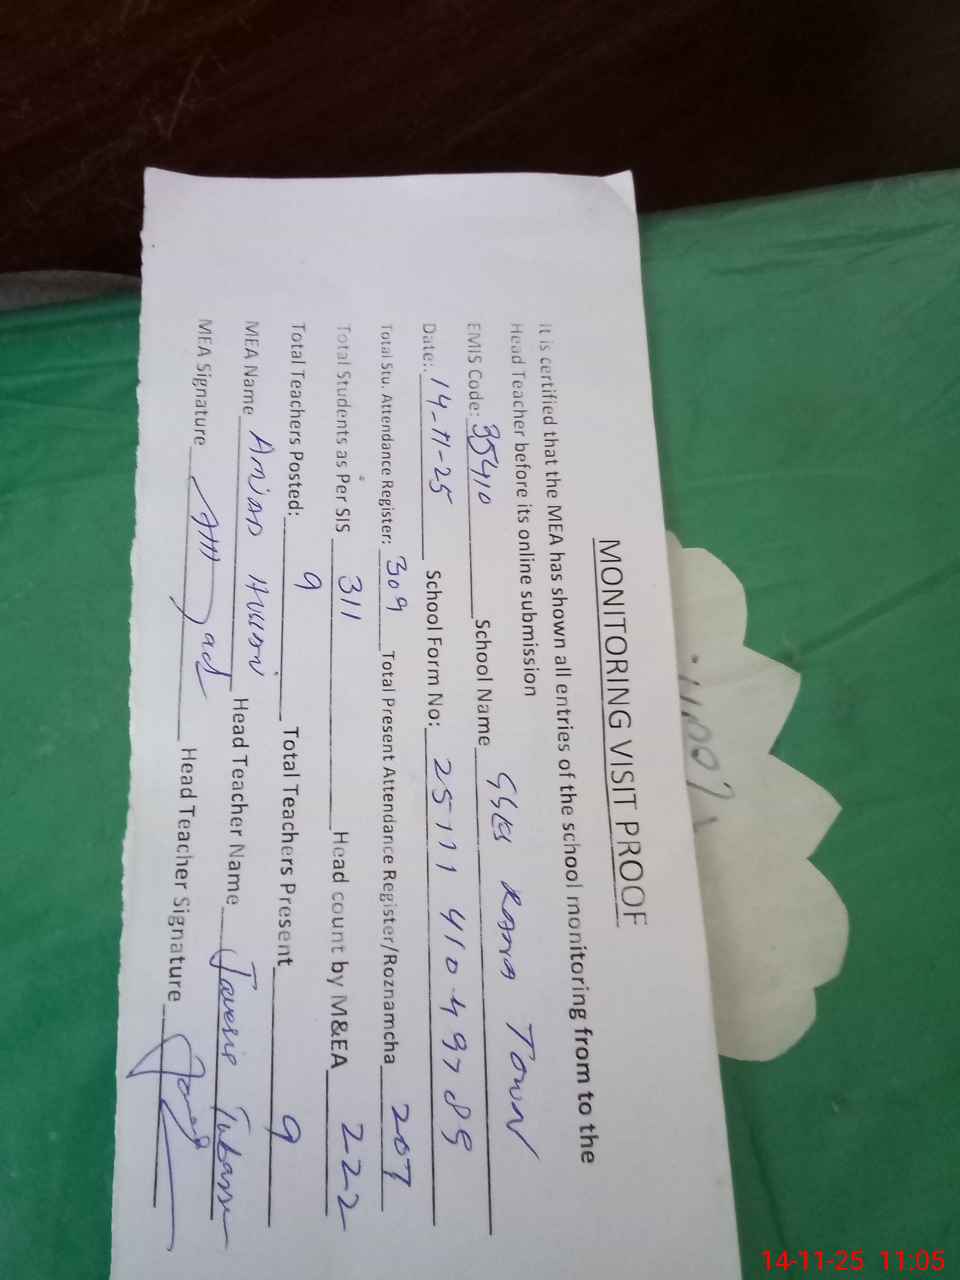 MONITORING VISIT PROOF
It is certified that the MEA has shown all entries of the school monitoring from to the
Head Teacher before its online submission
EMIS Code: 35410 School Name GGES Rana Town
Date:. 14-11-25 School Form No: 2511141049789
Total Stu. Attendance Register: 309 Total Present Attendance Register/Roznamcha 207
Total Students as Per SIS 311 Head count by M&EA 222
Total Teachers Posted: 9 Total Teachers Present 9
MEA Name Amjad Hussain Head Teacher Name Javeria
MEA Signature Head Teacher Signature
14-11-25 11:05